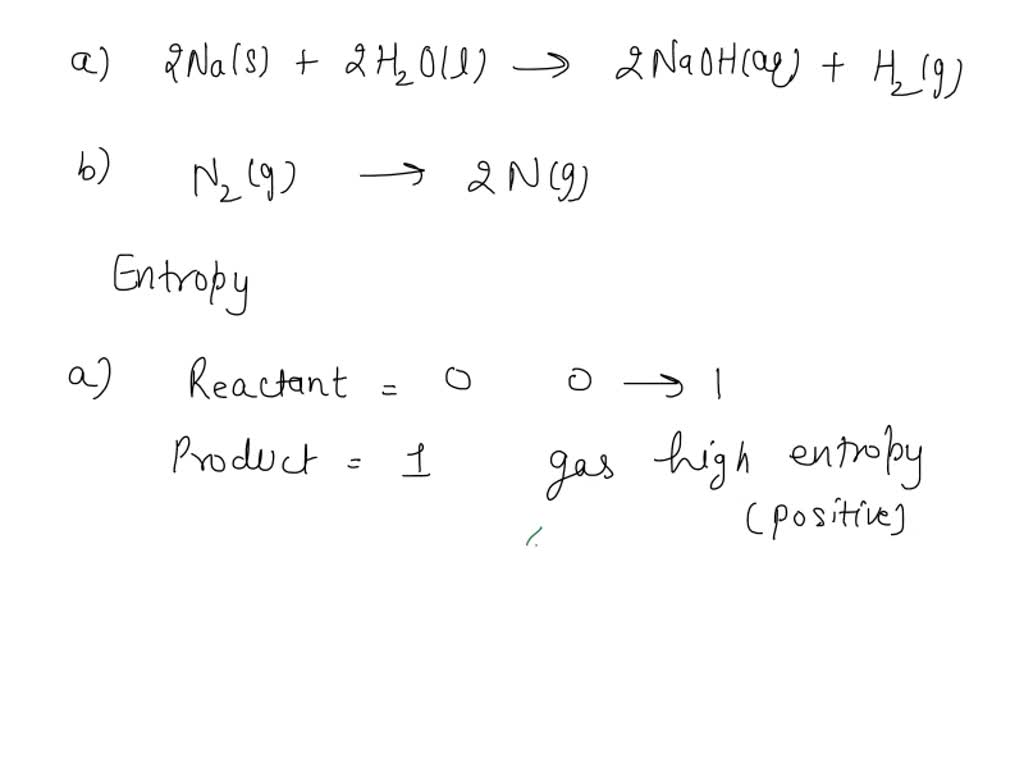 a) 2Na(s) + 2H₂O(l) → 2NaOH(aq) + H₂(g)
b) N₂(g) → 2N(g)
Entropy
a) Reactant = 0 0 → 1
Product = 1 gas high entropy
(positive)